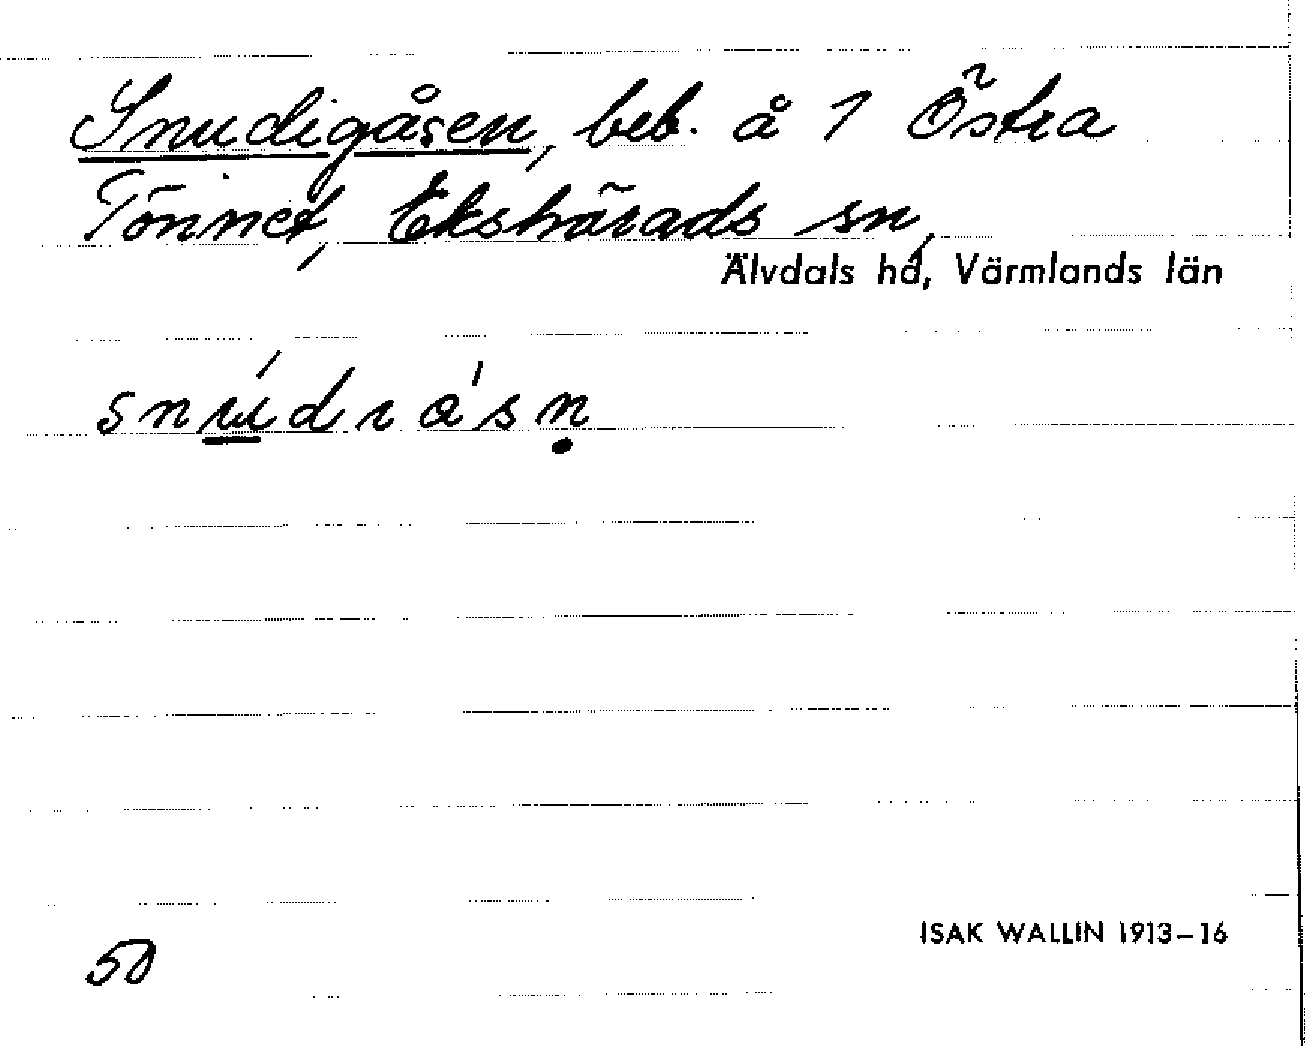 Snudigåsen, beb. å 1 Östra
Tönnet, Ekshärads sn,
Älvdals hd, Värmlands län
snú̲dıa'sṇ
50
ISAK WALLIN 1913–16